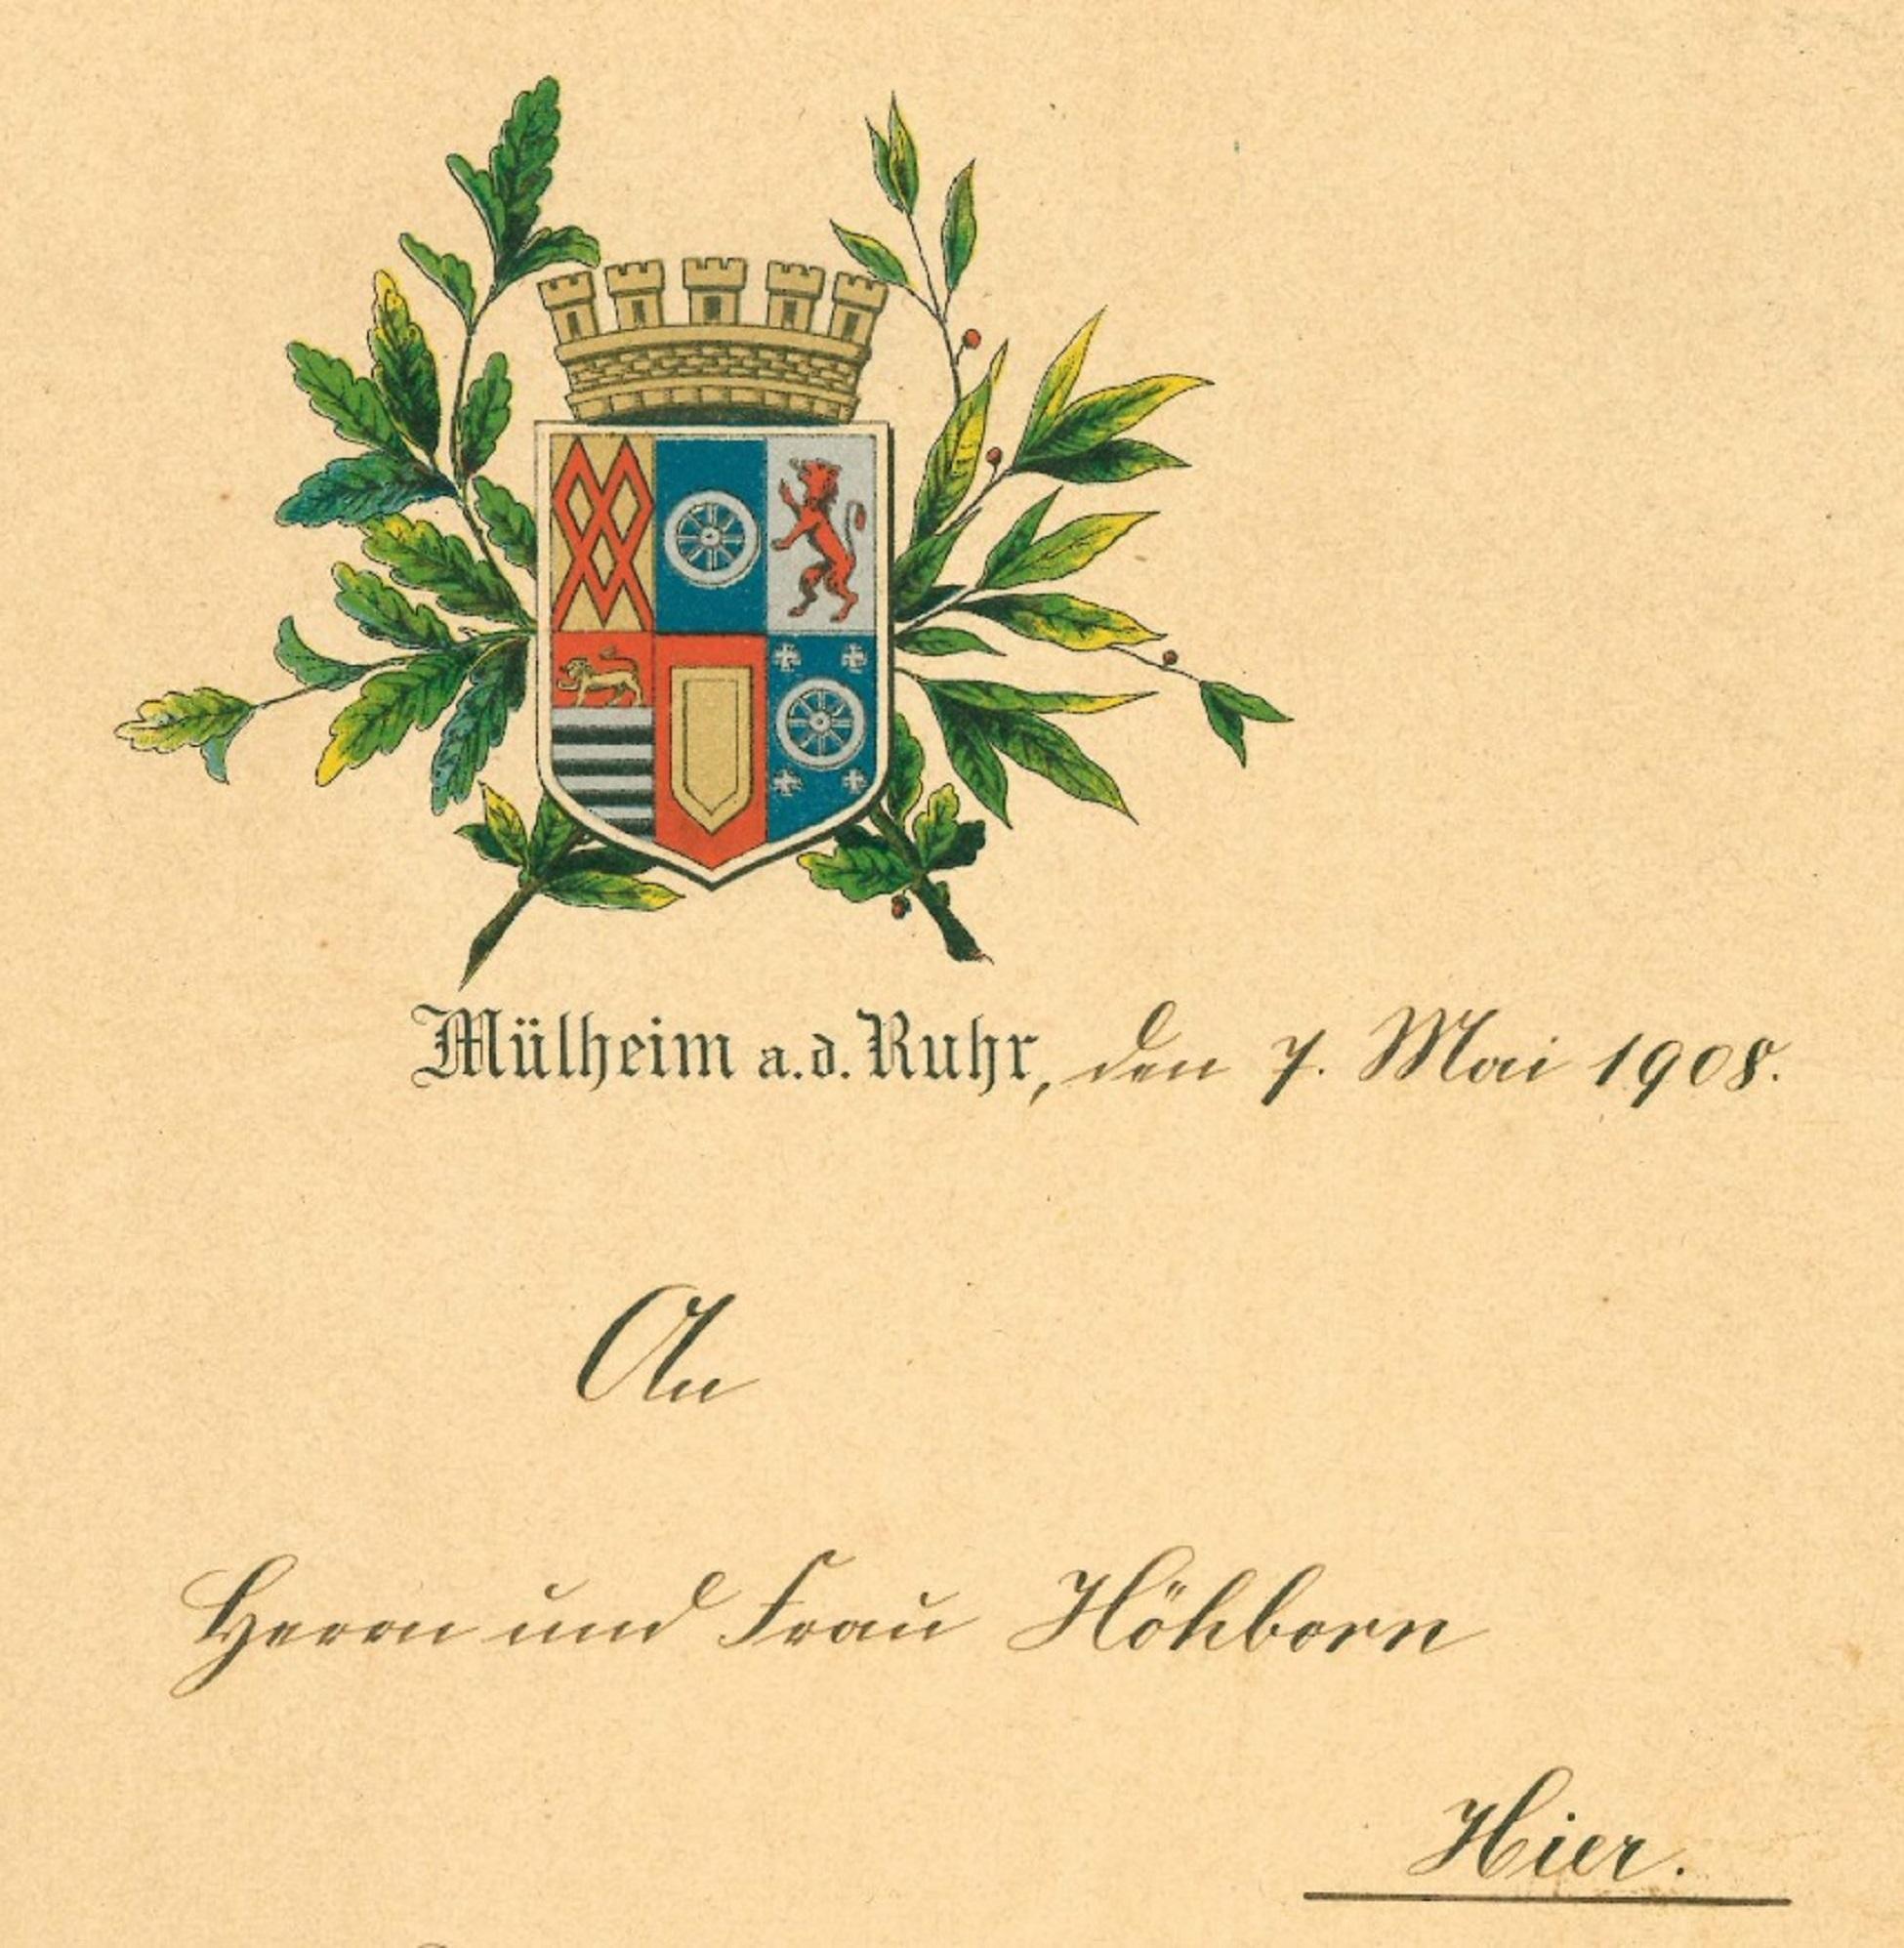 Mülheim a.d. Ruhr, den 7. Mai 1908.
An
Herrn und Frau Höhborn
Hier.